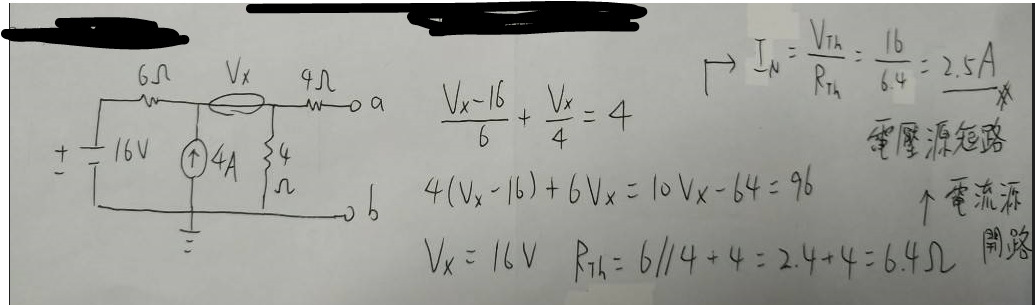 6Ω Vx 4Ω
a
+ - 16V 4A 4Ω
b
(Vx-16)/6 + Vx/4 = 4
4(Vx-16)+6Vx=10Vx-64=96
Vx=16V RTh=6//4+4=2.4+4=6.4Ω
→ IN = VTh/RTh = 16/6.4 = 2.5A
電壓源短路
↑電流源開路